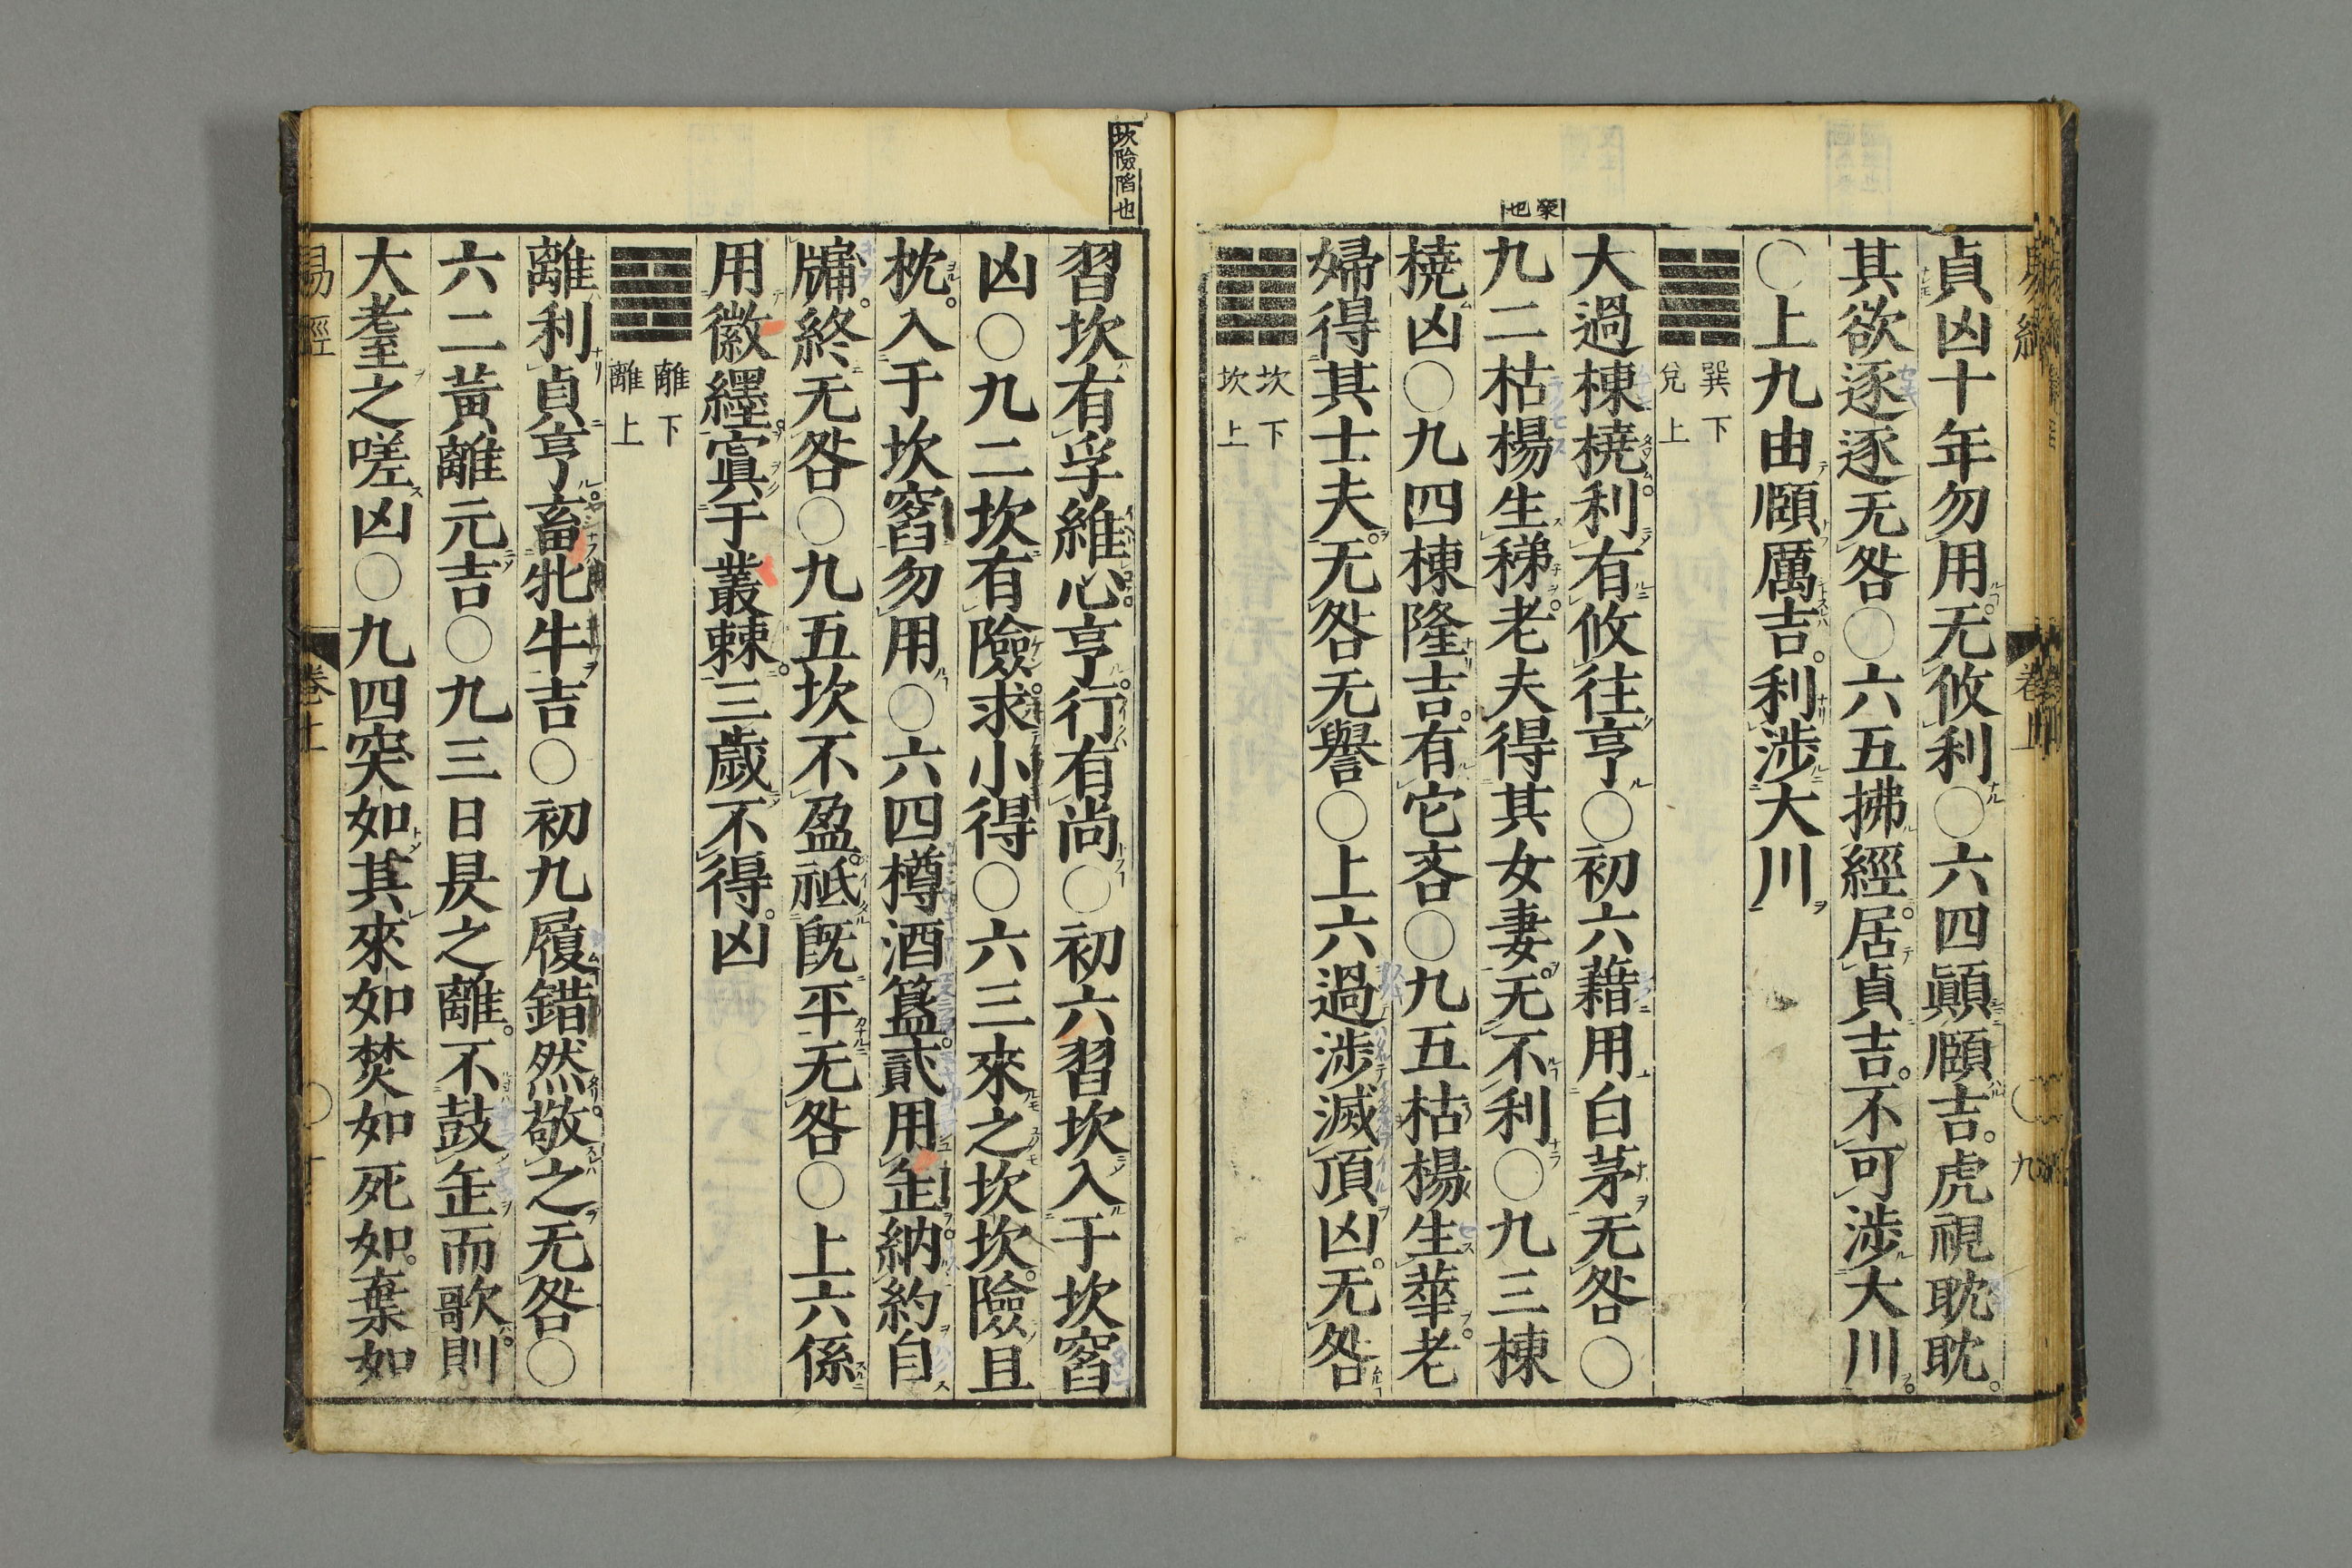 貞凶十年勿用无攸利〇六四顚頤吉虎視耽耽
其欲逐逐无咎〇六五拂經居貞吉不可涉大川
〇上九由頤厲吉利涉大川
巽下
兌上
大過棟橈利有攸往亨〇初六藉用白茅无咎〇
九二枯楊生稊老夫得其女妻无不利〇九三棟
橈凶〇九四棟隆吉有它吝〇九五枯楊生華老
婦得其士夫无咎无譽〇上六過涉滅頂凶无咎
坎下
坎上
坎險陷也
習坎有孚維心亨行有尚〇初六習坎入于坎窞
凶〇九二坎有險求小得〇六三來之坎坎險且
枕入于坎窞勿用〇六四樽酒簋貳用缶納約自
牖終无咎〇九五坎不盈祗旣平无咎〇上六係
用徽纆寘于叢棘三歲不得凶
離下
離上
離利貞亨畜牝牛吉〇初九履錯然敬之无咎〇
六二黃離元吉〇九三日昃之離不鼓缶而歌則
大耋之嗟凶〇九四突如其來如焚如死如棄如
易經
卷上